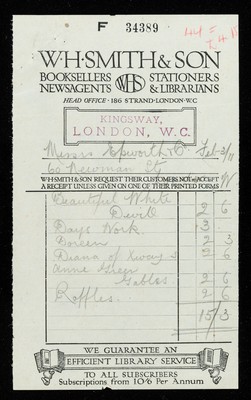 F 34389
W·H·SMITH & SON
BOOKSELLERS STATIONERS
NEWSAGENTS WHS & LIBRARIANS
HEAD OFFICE · 186 STRAND · LONDON · W·C
KINGSWAY,
LONDON, W.C.
Messrs Epworth & Feb 3/11
60 Newman St
W·H·SMITH & SON REQUEST THEIR CUSTOMERS NOT to ACCEPT
A RECEIPT UNLESS GIVEN ON ONE OF THEIR PRINTED FORMS
Beautiful White
Devil 2 6
Days Work 3
Doreen 2 3
Diana of 2 6
Anne Green
Gables 2 6
Raffles 2 6
15/3
WE GUARANTEE AN
EFFICIENT LIBRARY SERVICE
TO ALL SUBSCRIBERS
Subscriptions from 10/6 Per Annum